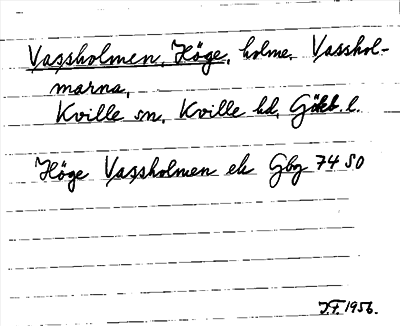 Vassholmen, Höge, holme. Vasshol-
marna,
Kville sn, Kville hd, Gökb. l.
Höge Vassholmen ek Gbg 74 SO
J.F. 1956.